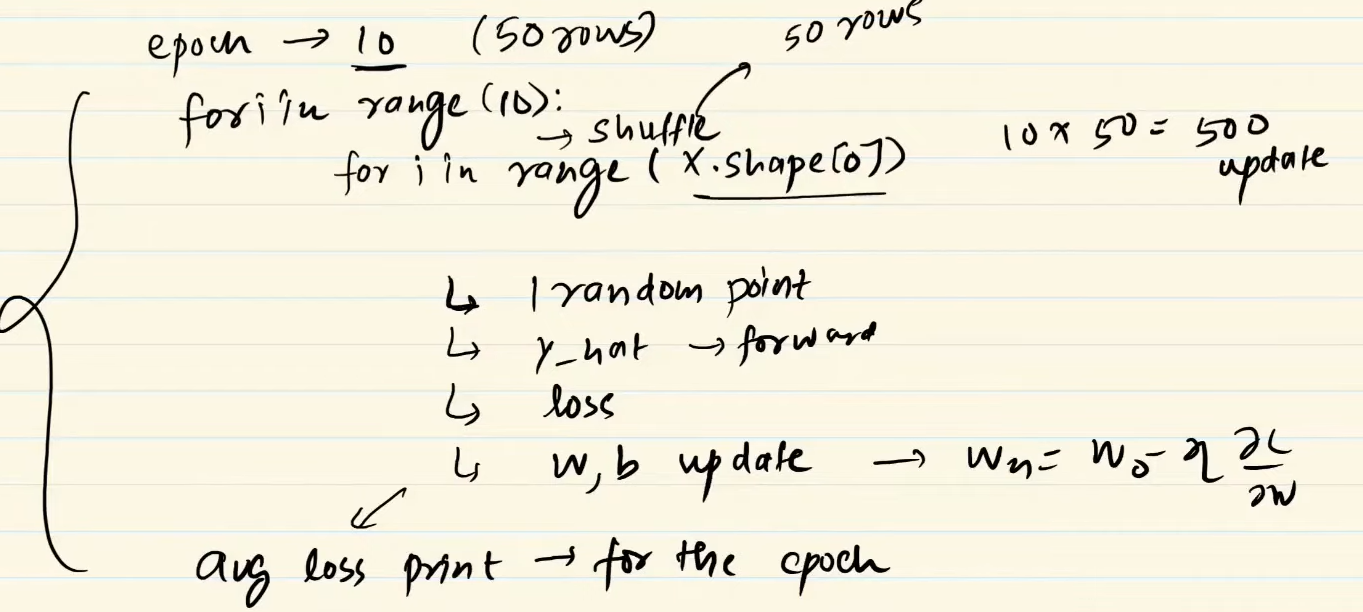 epoch → 10 (50 rows)
50 rows
for i in range(10):
→ shuffle
for j in range (X.shape[0])
10 x 50 = 500
update
↳ 1 random point
↳ y_hat → forward
↳ loss
↳ w, b update → Wn = Wo - η ∂L/∂W
avg loss print → for the epoch